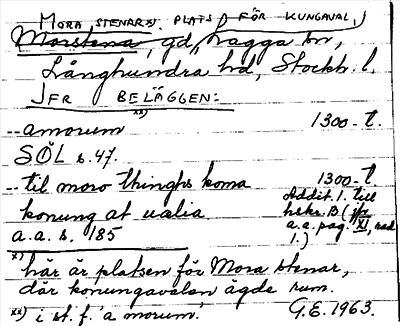 MORA STENAR x) PLATS FÖR KUNGAVAL,
Morstena, gd, Lagga sn,
Långhundra hd, Stockh. l.
JFR BELÄGGEN:
-- amorum xx) 1300-t.
SÖL s. 47.
-- til moro thinghs koma 1300-t
konung at ualia. Addit. 1. till
hskr. B (jfr
a.a.s. 185 a.a. pag. XI, rad
1.)
x) här är platsen för Mora stenar,
där konungavalen ägde rum.
xx) i st. f. a morum. G.E. 1963.